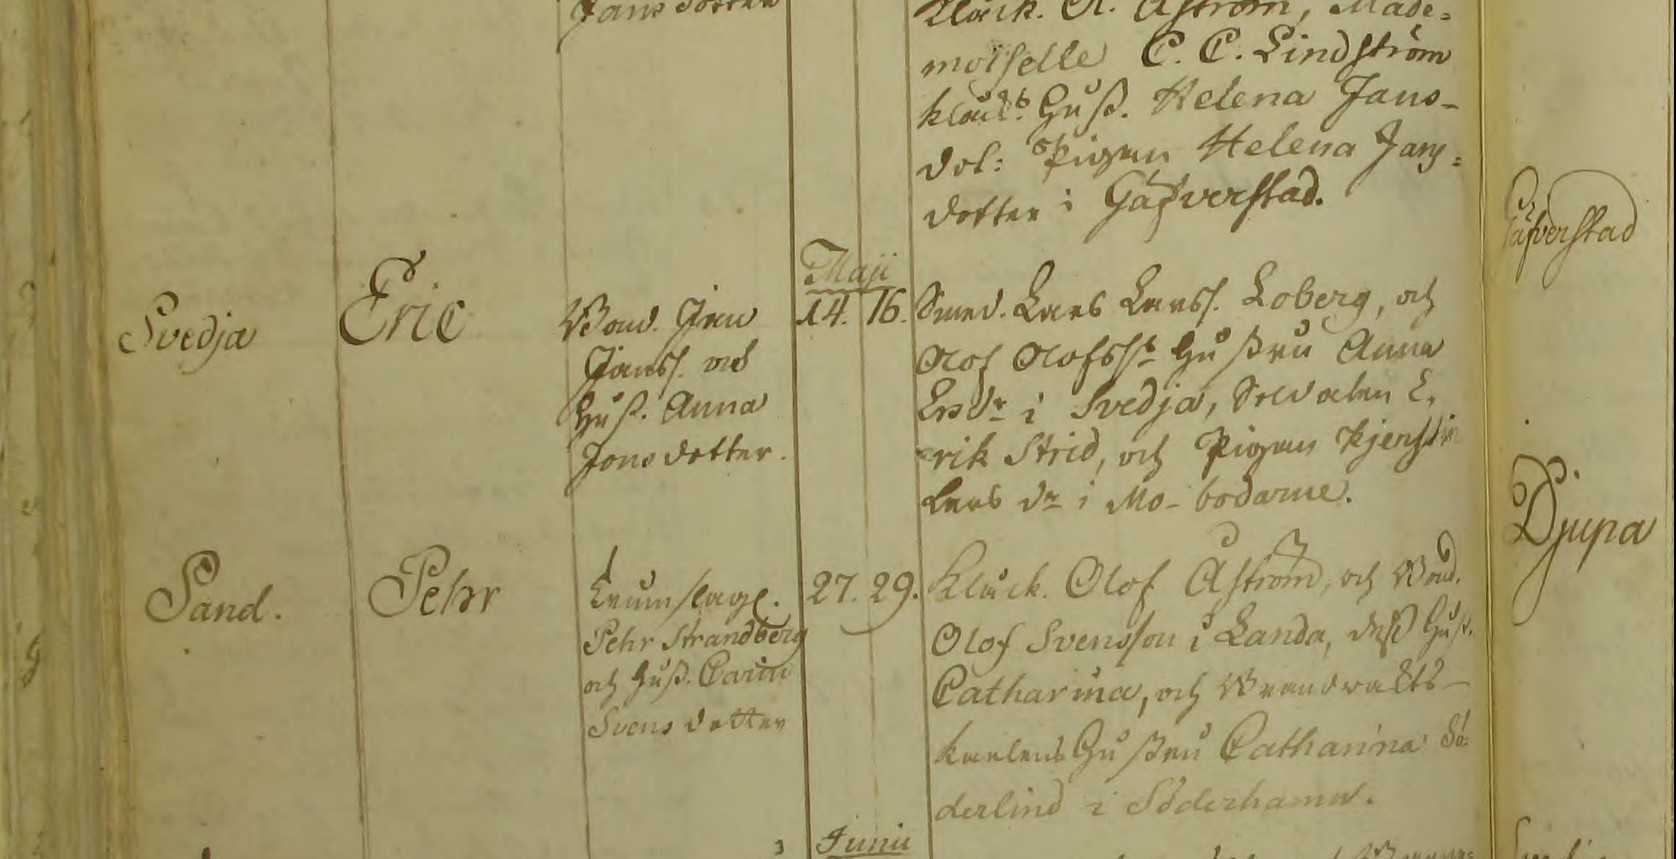 Jansdotter
Klåck. O. Åström, Made-
moiselle C. C. Lindström
Klåck:s Huß. Helena Jans-
dot: Pigan Helena Jans-
dotter i Gäfverstad.
Gäfverstad
Maji
Svedja
Eric
Bond. Jan
Janss. och
Huß. Anna
Jonsdotter.
14. 16.
Smed. Lars Larss. Loberg, och
Olof Olofss:s Hußtru Anna
Ersdr i Svedja, Soldaten E-
rik Strid, och Pigan Kjerstin
Lars dr i Mo-bodarne.
Djupa
Sand.
Pehr
Trumslag.
Pehr Strandberg
och Huß. Carin
Svensdotter
27. 29.
Klåck. Olof Åström, och Bond.
Olof Svensson i Landa, deß Huß.
Catharina, och Brandvakts-
karlens Hußtru Catharina Sö-
derlind i Söderhamn.
Junii